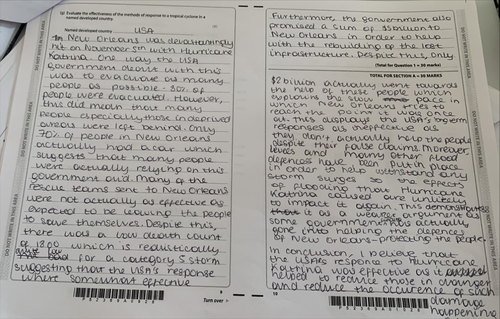 (e) Evaluate the effectiveness of the methods of response to a tropical cyclone in a
named developed country.
Named developed country USA
In New Orleans was devastatingly
hit on November 5th with Hurricane
Katrina. One way the USA
government dealt with this
was to evacuate as many
people as possible - 80% of
people were evacuated. However,
this did mean that many
people especially those in deprived
areas were left behind. Only
70% of people in New Orleans
actually had a car which
suggests that many people
were actually relying on this
government aid. Many of the
rescue teams sent to New Orleans
were not actually as effective as
expected to be leaving the people
to save themselves. Despite this,
there was a low death count
of 1809 which is realistically
for a category 5 storm
suggesting that the USA's response
where somewhat effective
9
Turn over
Furthermore, the government also
promised a sum of
New Orleans in order to help
with the rebuilding of the lost
infrastructure. Despite this, only
(Total for Question 1 = 30 marks)
TOTAL FOR SECTION A = 30 MARKS
$2 billion actually went towards
the help of these people which
explains the slow place in
which New Orleans tries to
reach the point it was once
at. This displays the USA's
responses as ineffective as
they didn't actually help the people
despite their false claims. Moreover,
levees and many other flood
defences have been put in place
in order to help withstand any
storm surges so the effects
of flooding that Hurricane
Katrina caused are unlikely
to impact it again. This demonstrates
it as a weaker argument as
some government is actually
gone into helping the defences
of New Orleans - protecting the people.
In conclusion, I believe that
the USA's response to Hurricane
Katrina was effective as it
helped to reduce those in danger
and reduce the occurence of such
damage
happening
10
DO NOT WRITE IN THIS AREA
DO NOT WRITE IN THIS AREA
DO NOT WRITE IN THIS AREA